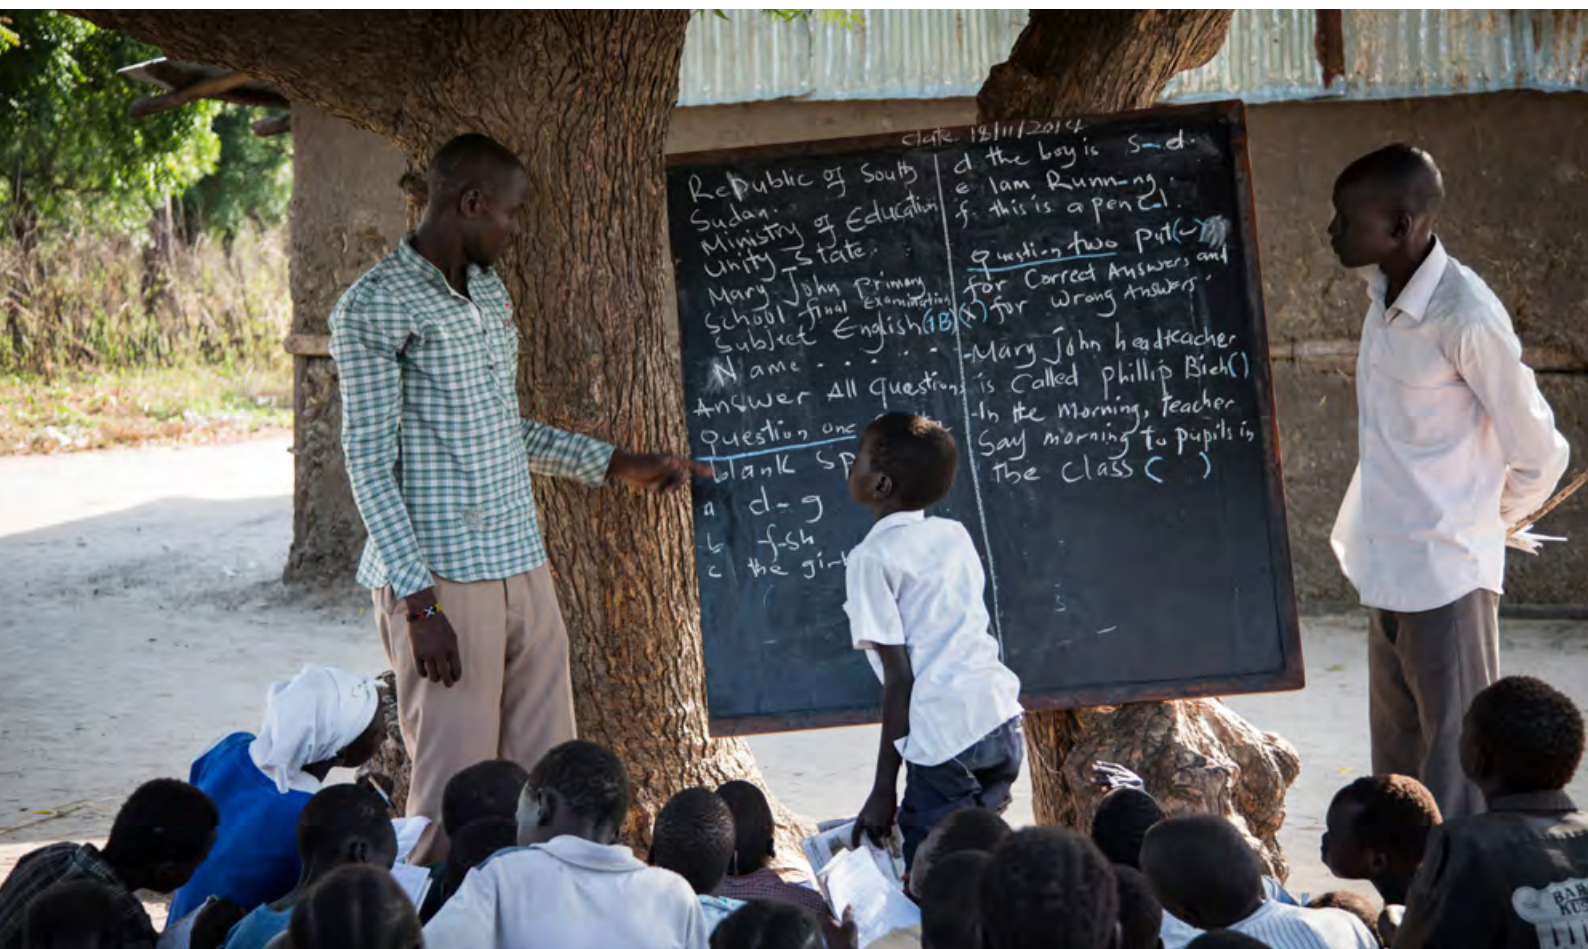 date 18/11/2014
Republic of South
Sudan.
Ministry of Education
Unity State.
Mary John primary
School final Examination
Subject English (1B)
Name . . . . .
Answer All questions
question one
blank sp
a d-g
b -f-sh
c the gi-l
d the boy is s-d.
e Iam Runn-ng.
f. this is a pencl.
question two put(✓)
for Correct Answers and
(x) for wrong Answers
-Mary John headteacher
is called phillip Bieh()
-In the morning, teacher
Say morning to pupils in
the class ( )